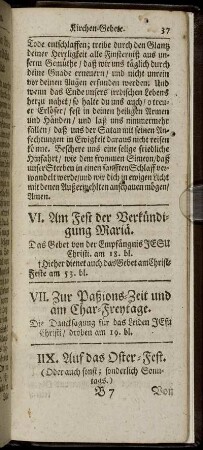 Kirchen-Gebete. 37
Tode entschlaffen; treibe durch den Glantz
deiner Herrligkeit alle Finsternüß aus un-
serm Gemüthe/ daß wir uns täglich durch
deine Gnade erneuern/ und nicht unrein
vor deinen Augen erfunden werden. Und
wenn das Ende unsers irrdischen Lebens
herzu nahet/ so halte du uns auch/ o treu-
er Erlöser/ fest in deinen heiligen Armen
und Händen/ und laß uns nimmermehr
fallen/ daß uns der Satan mit seinen An-
fechtungen in Ewigkeit daraus nicht reissen
könne. Beschere uns eine selige friedliche
Hinfahrt/ wie dem frommen Simeon/ daß
unser Sterben in einen sanfften Schlaff ver-
wandelt werde/ und wir dich im ewigen Licht
mit deinen Außerwehlten anschauen mögen/
Amen.
VI. Am Fest der Verkündi-
gung Mariä.
Das Gebet von der Empfängnis JEsu
Christi. am 18. bl.
† Hieher dienet auch das Gebet am Christ-
Feste am 53. bl.
VII. Zur Paßions-Zeit und
am Char-Freytage.
Die Dancksagung für das Leiden JEsu
Christi/ droben am 19. bl.
IIX. Auf das Oster-Fest.
(Oder auch sonst; sonderlich Sonn-
tags.)
B 7 Von